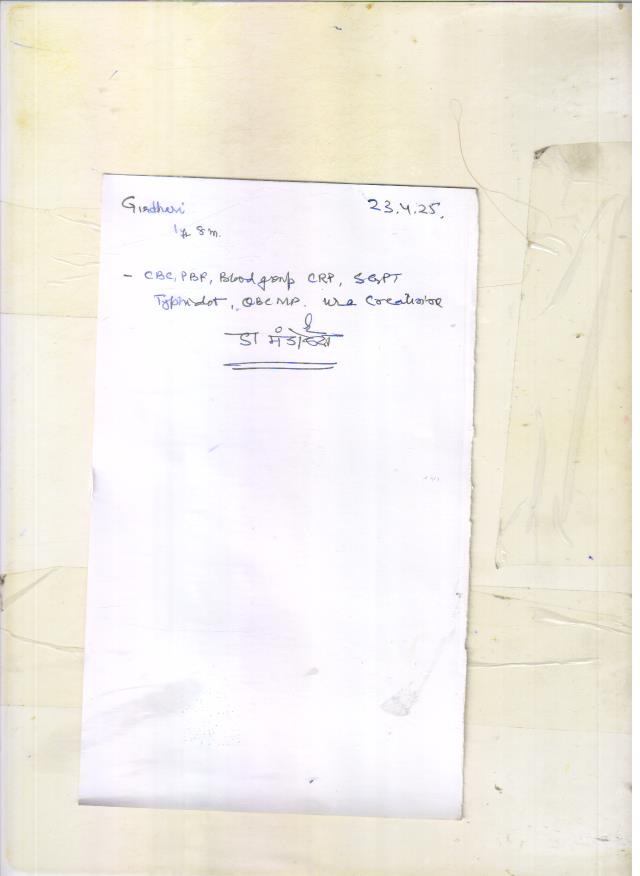 Girdhari 23.4.25.
1 yr 8 m.
- CBC, PBF, Blood group CRP, SGPT
Typhidot, QBC MP. Urea Creatinine
डा मंडोव्या